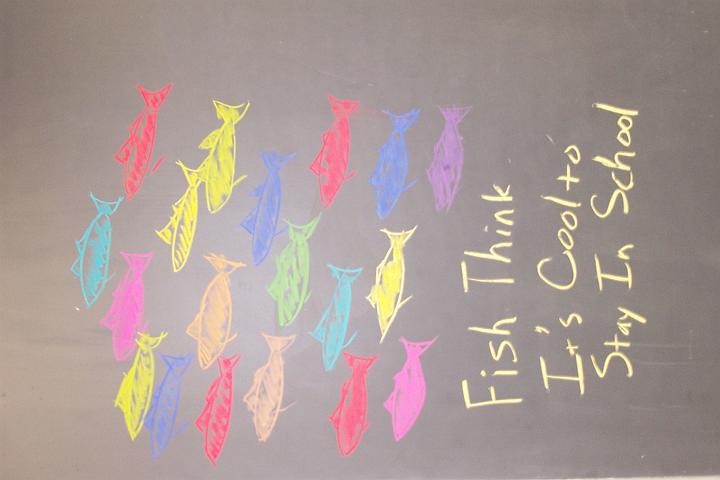 Fish Think
It's Cool to
Stay In School